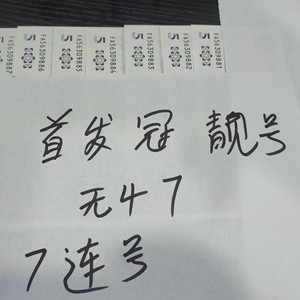 FA56309887
5
FA56309886
5
FA56309885
5
5
FA56309883
5
FA56309882
5
FA56309881
5
首发冠 靓号
无47
7连号